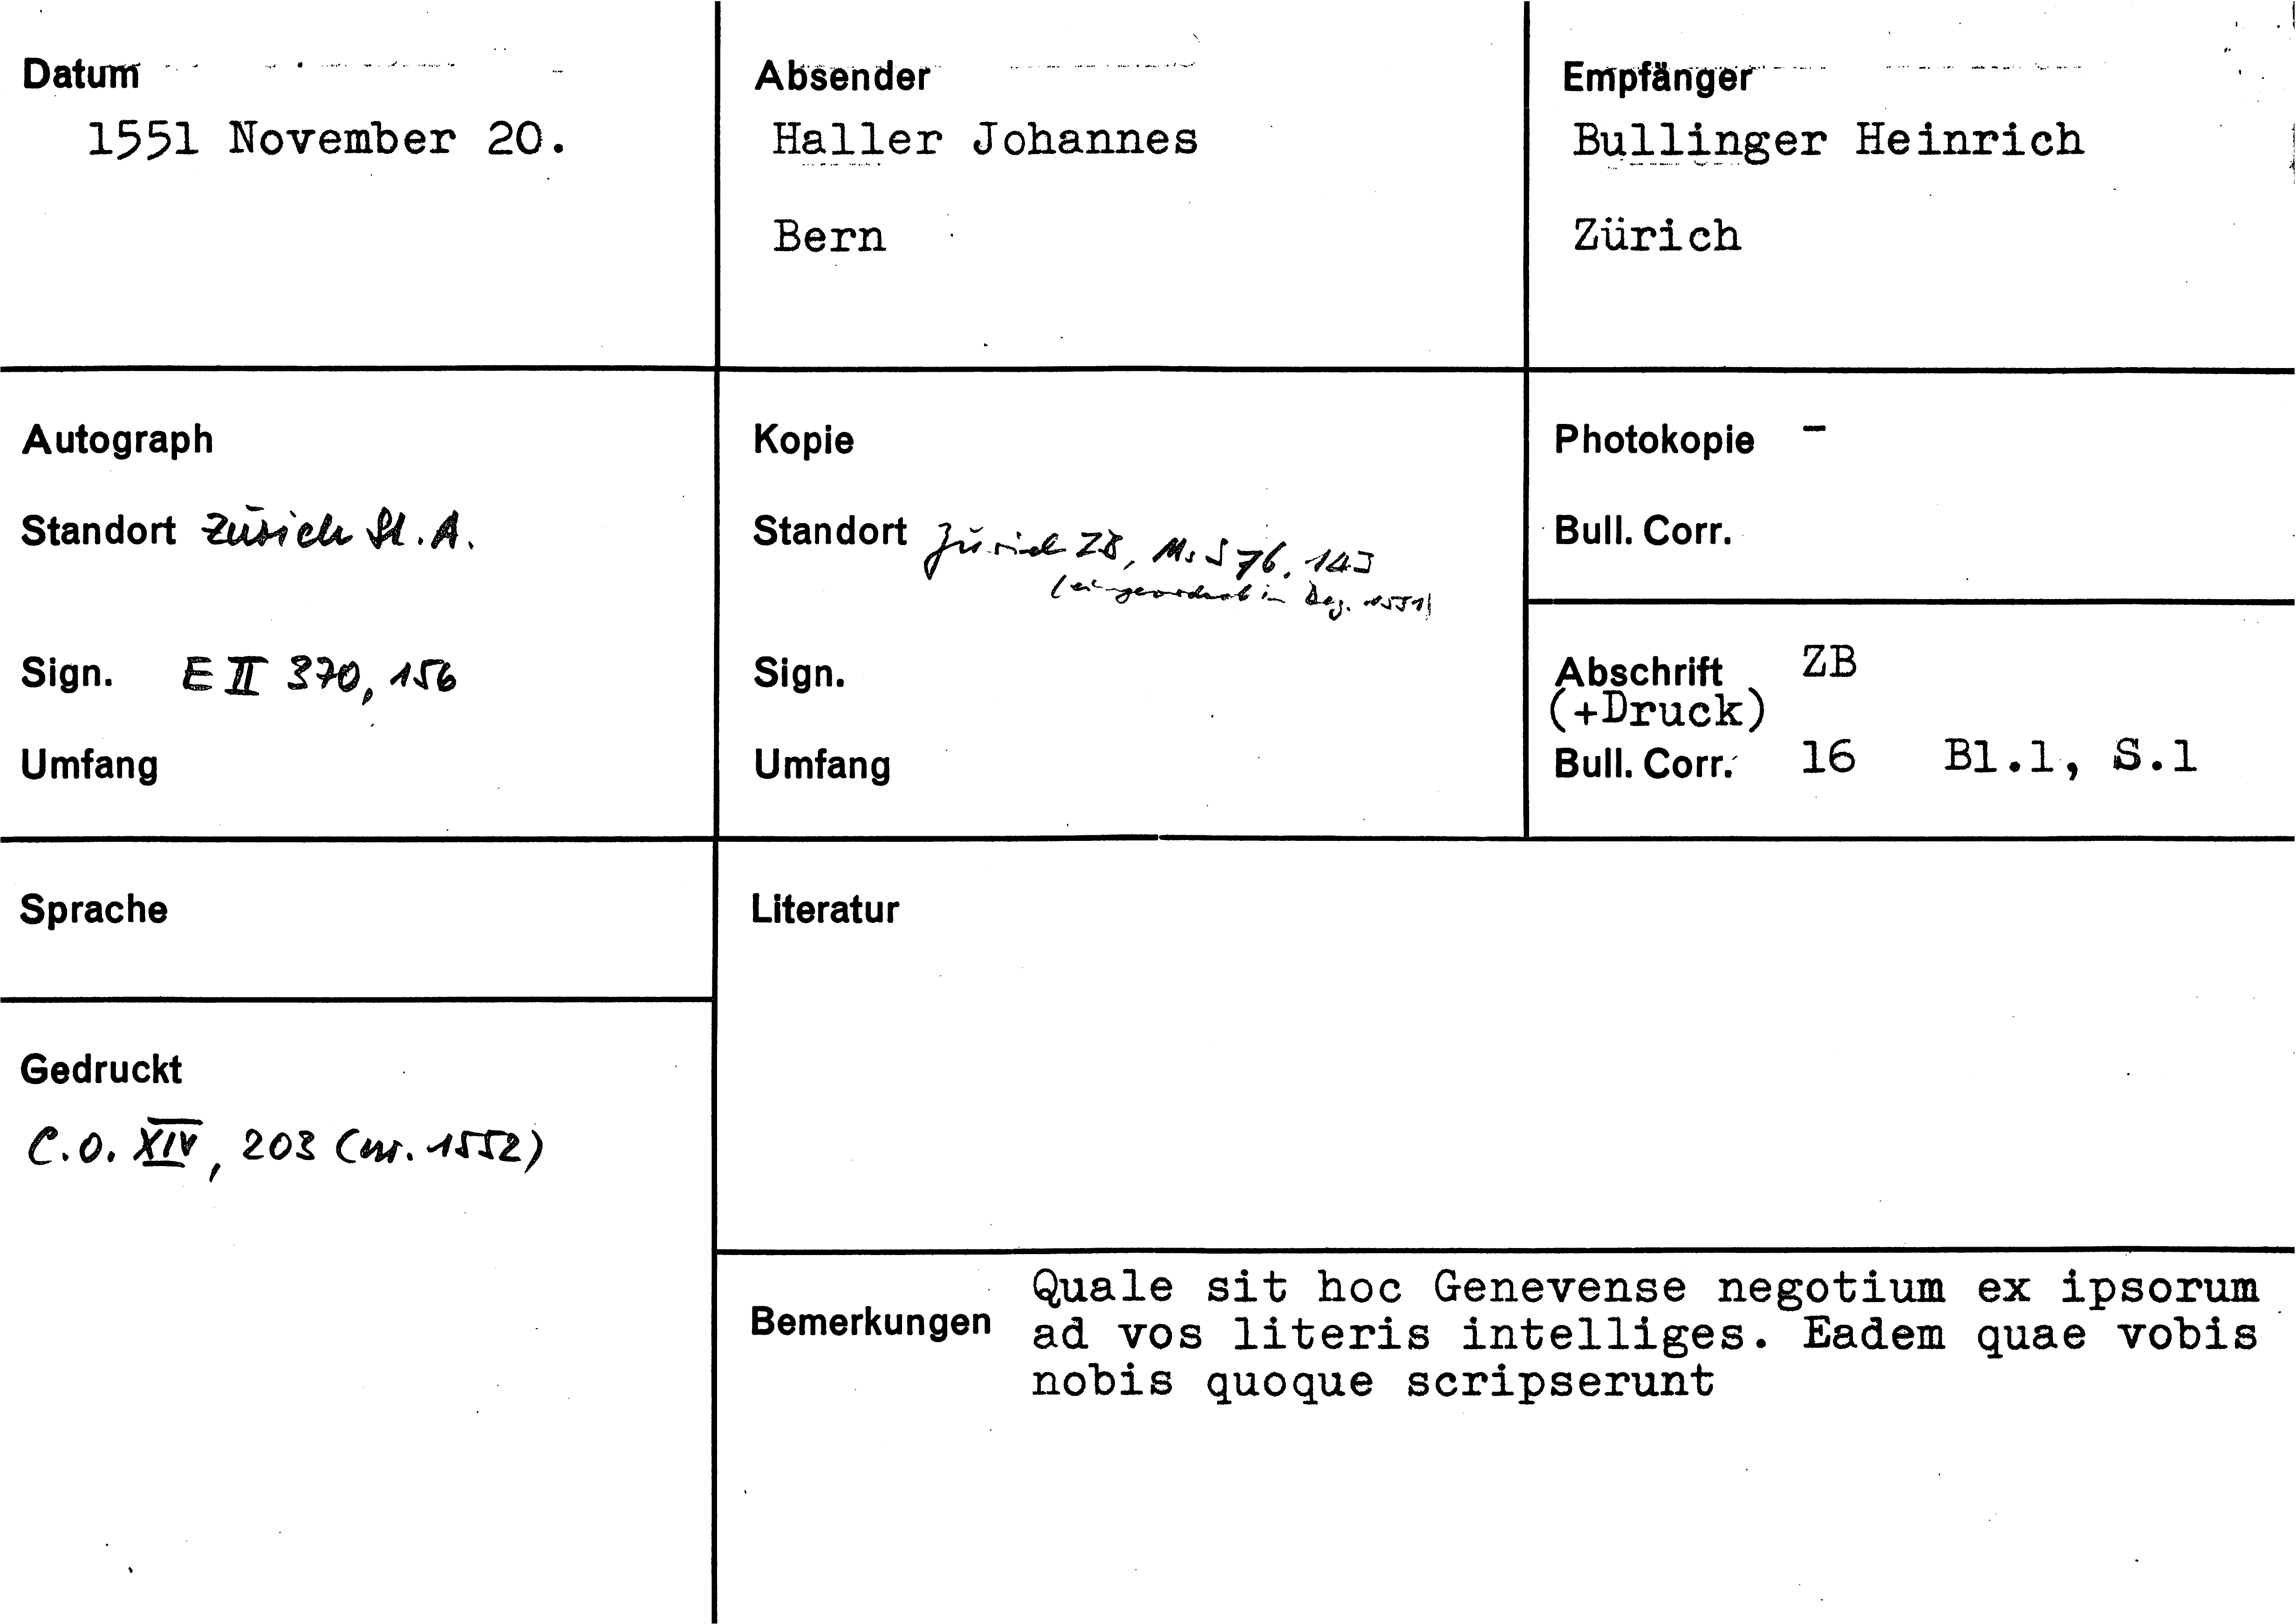 Datum
1551 November 20.
Absender
Haller Johannes
Bern
Empfänger
Bullinger Heinrich
Zürich
Autograph
Standort Zürich St.A.
Sign. E II 370, 156
Umfang
Kopie
Standort Zürich ZB, Ms S 76, 143
(eingeordnet in Dez. 1551)
Sign.
Umfang
Photokopie -
Bull. Corr.
Abschrift ZB
(+Druck)
Bull. Corr. 16 Bl.1, S.1
Sprache
Gedruckt
C.O. XIV, 203 (nr. 1552)
Literatur
Bemerkungen
Quale sit hoc Genevense negotium ex ipsorum
ad vos literis intelliges. Eadem quae vobis
nobis quoque scripserunt